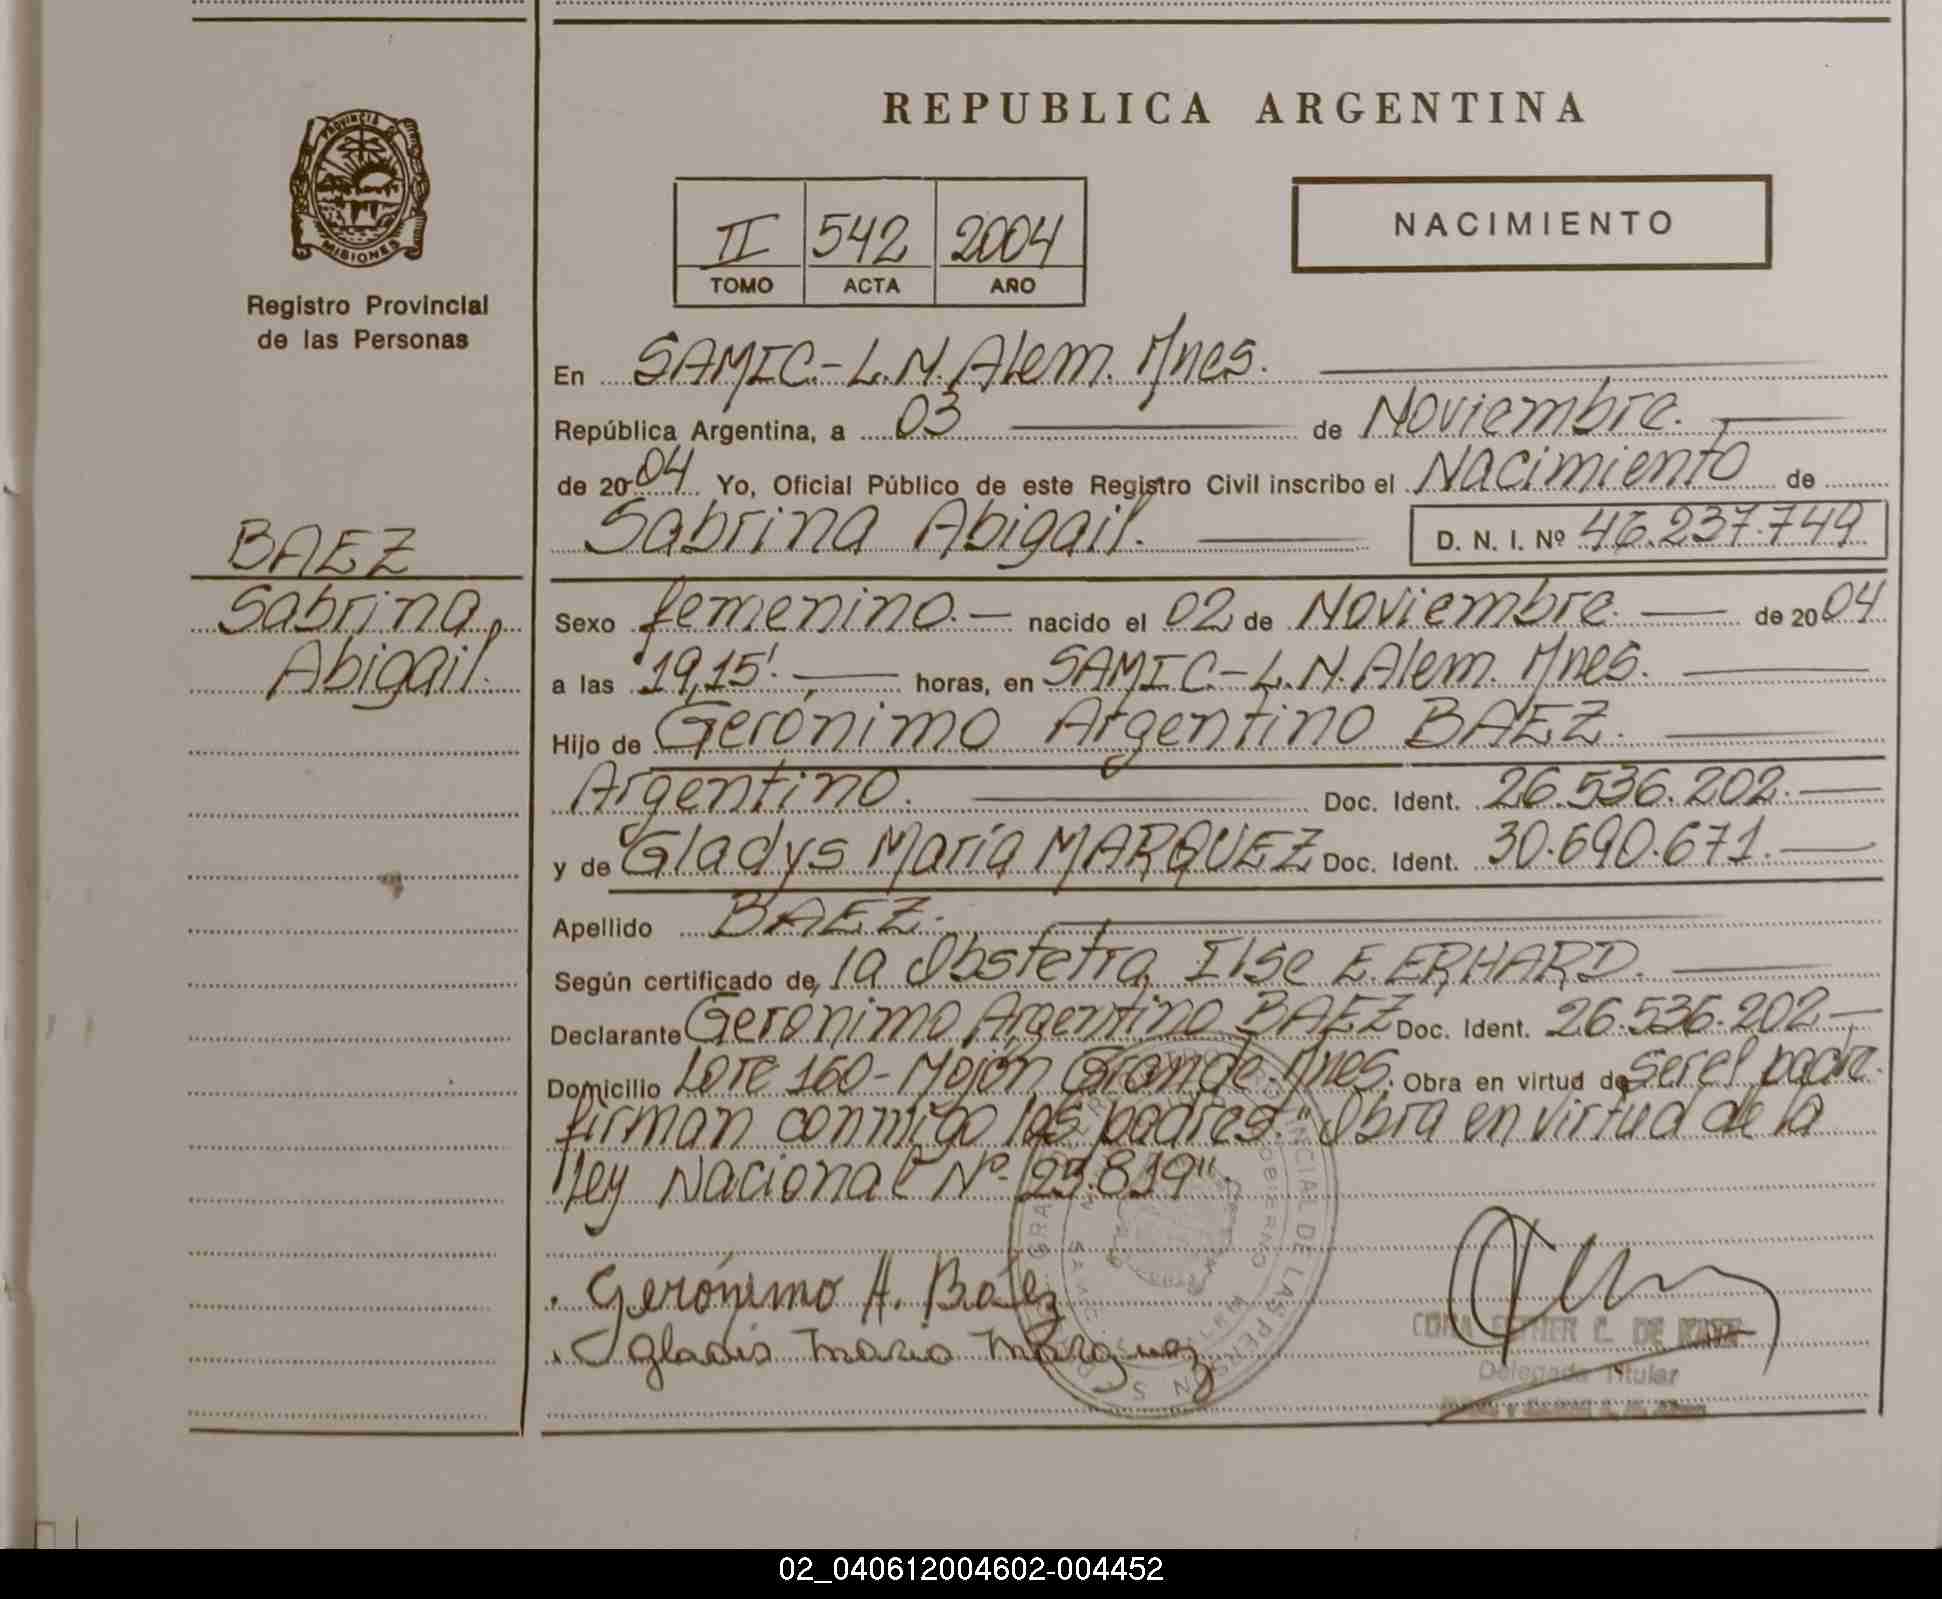 PROVINCIA DE
MISIONES
Registro Provincial
de las Personas
BAEZ
Sabrina,
Abigail.
REPUBLICA ARGENTINA
II 542 2004
TOMO ACTA AÑO
NACIMIENTO
En SAMIC.-L.N.Alem. Mnes.
República Argentina, a 03 de Noviembre.
de 2004 Yo, Oficial Público de este Registro Civil inscribo el Nacimiento de
Sabrina Abigail. D. N. I. Nº 46.237.749
Sexo femenino.- nacido el 02 de Noviembre. de 2004
a las 19,15'. horas, en SAMIC-L.N.Alem. Mnes.
Hijo de Gerónimo Argentino BAEZ.
Argentino. Doc. Ident. 26.536.202.
y de Gladys María MARQUEZ Doc. Ident. 30.690.671.
Apellido BAEZ.
Según certificado de, la Obstetra, Ilse E. ERHARD.
Declarante Gerónimo Argentino BAEZ Doc. Ident. 26.536.202
Domicilio Lote 160-Mojón Grande-Mnes. Obra en virtud de ser el padre.
firman conmigo los padres." Obra en virtud de la
ley Nacional Nº 25.819".
Gerónimo A. Báez
gladis maria Marquez
DE KATZ
Delegada Titular
02_040612004602-004452